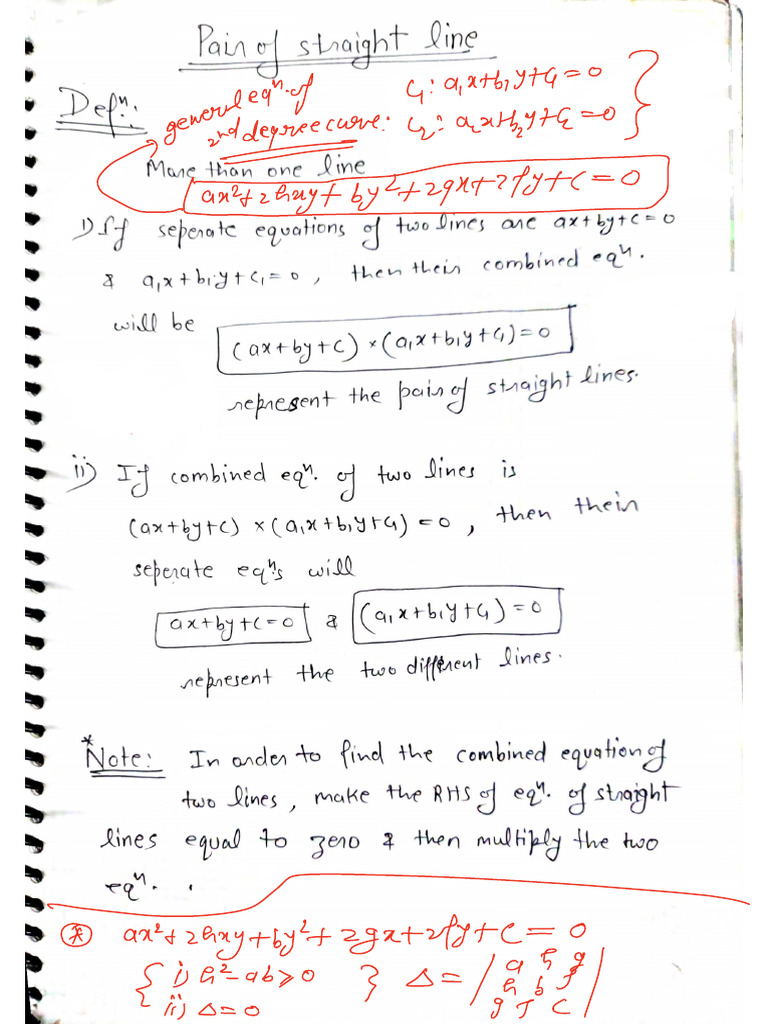 Pair of straight line
Defⁿ:
general eqⁿ. of
2nd degree curve:
C₁: a₁x+b₁y+C₁=0
C₂: a₂x+b₂y+C₂=0
More than one line
ax²+2hxy+by²+2gx+2fy+C=0
i) If seperate equations of two lines are ax+by+c=0
& a₁x+b₁y+C₁=0, then their combined eqⁿ.
will be (ax+by+c)×(a₁x+b₁y+C₁)=0
represent the pair of straight lines.
ii) If combined eqⁿ. of two lines is
(ax+by+c)×(a₁x+b₁y+C₁)=0, then their
seperate eqⁿ.s will
ax+by+c=0 & (a₁x+b₁y+C₁)=0
represent the two different lines.
*Note: In order to find the combined equation of
two lines, make the RHS of eqⁿ. of straight
lines equal to zero & then multiply the two
eqⁿ. .
* ax²+2hxy+by²+2gx+2fy+C=0
{ i) h²-ab⩾0 } Δ= | a h g
ii) Δ=0 h b f
g f C |